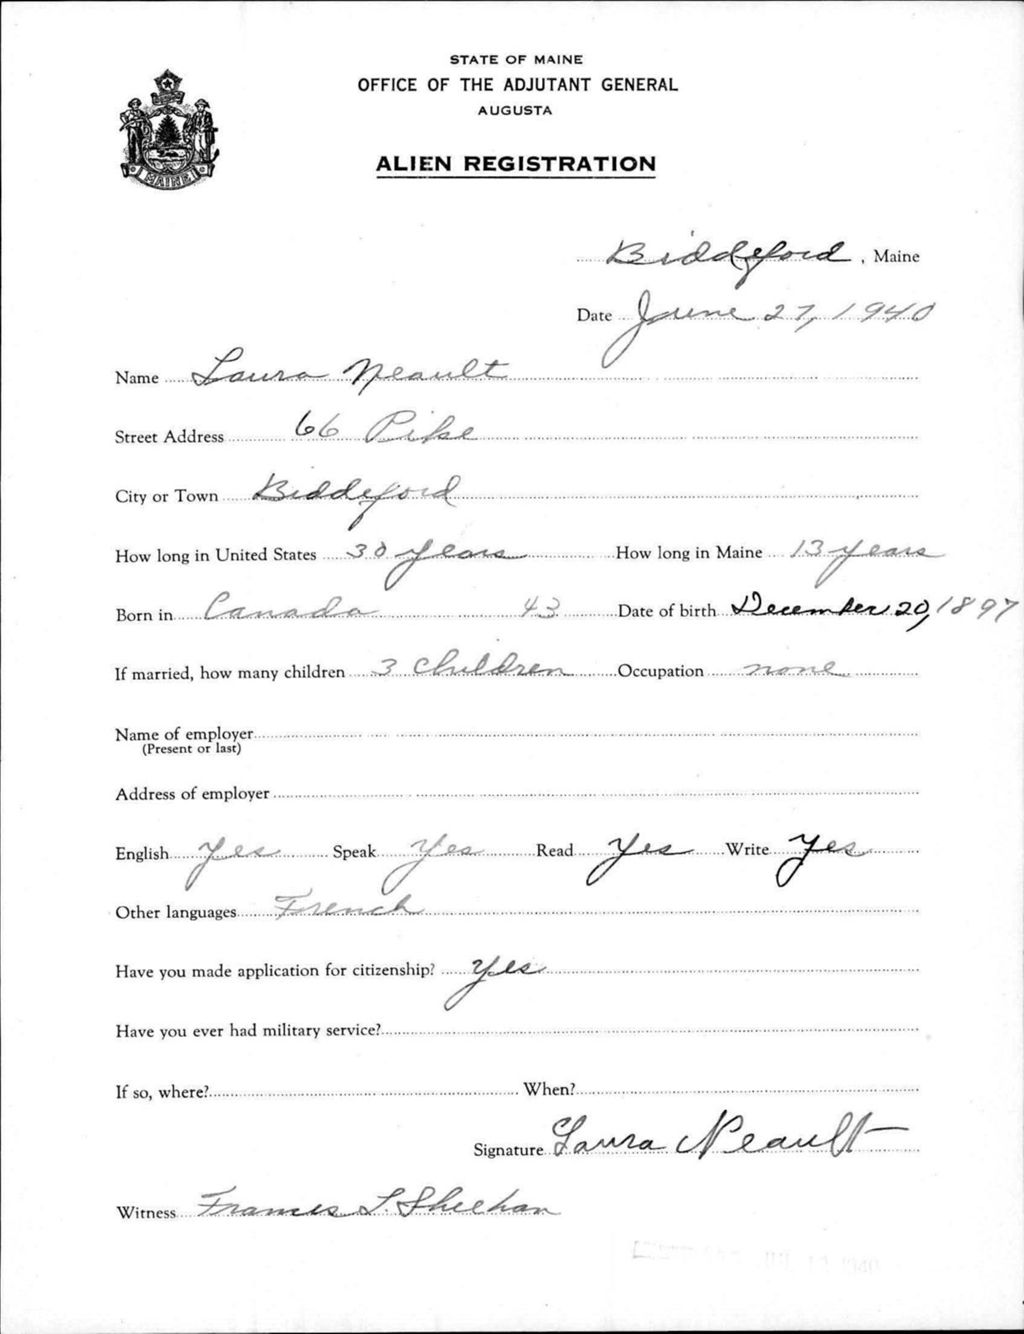 STATE OF MAINE
OFFICE OF THE ADJUTANT GENERAL
AUGUSTA
ALIEN REGISTRATION
MAINE
Biddeford, Maine
Date June 27, 1940
Name Laura Neault
Street Address 66 Pike
City or Town Biddeford
How long in United States 30 years How long in Maine 13 years
Born in Canada 43 Date of birth December 20, 1897
If married, how many children 3 children Occupation none
Name of employer
(Present or last)
Address of employer
English Yes Speak Yes Read Yes Write Yes
Other languages French
Have you made application for citizenship? Yes
Have you ever had military service?
If so, where? When?
Signature Laura Neault
Witness Frances L. Sheehan